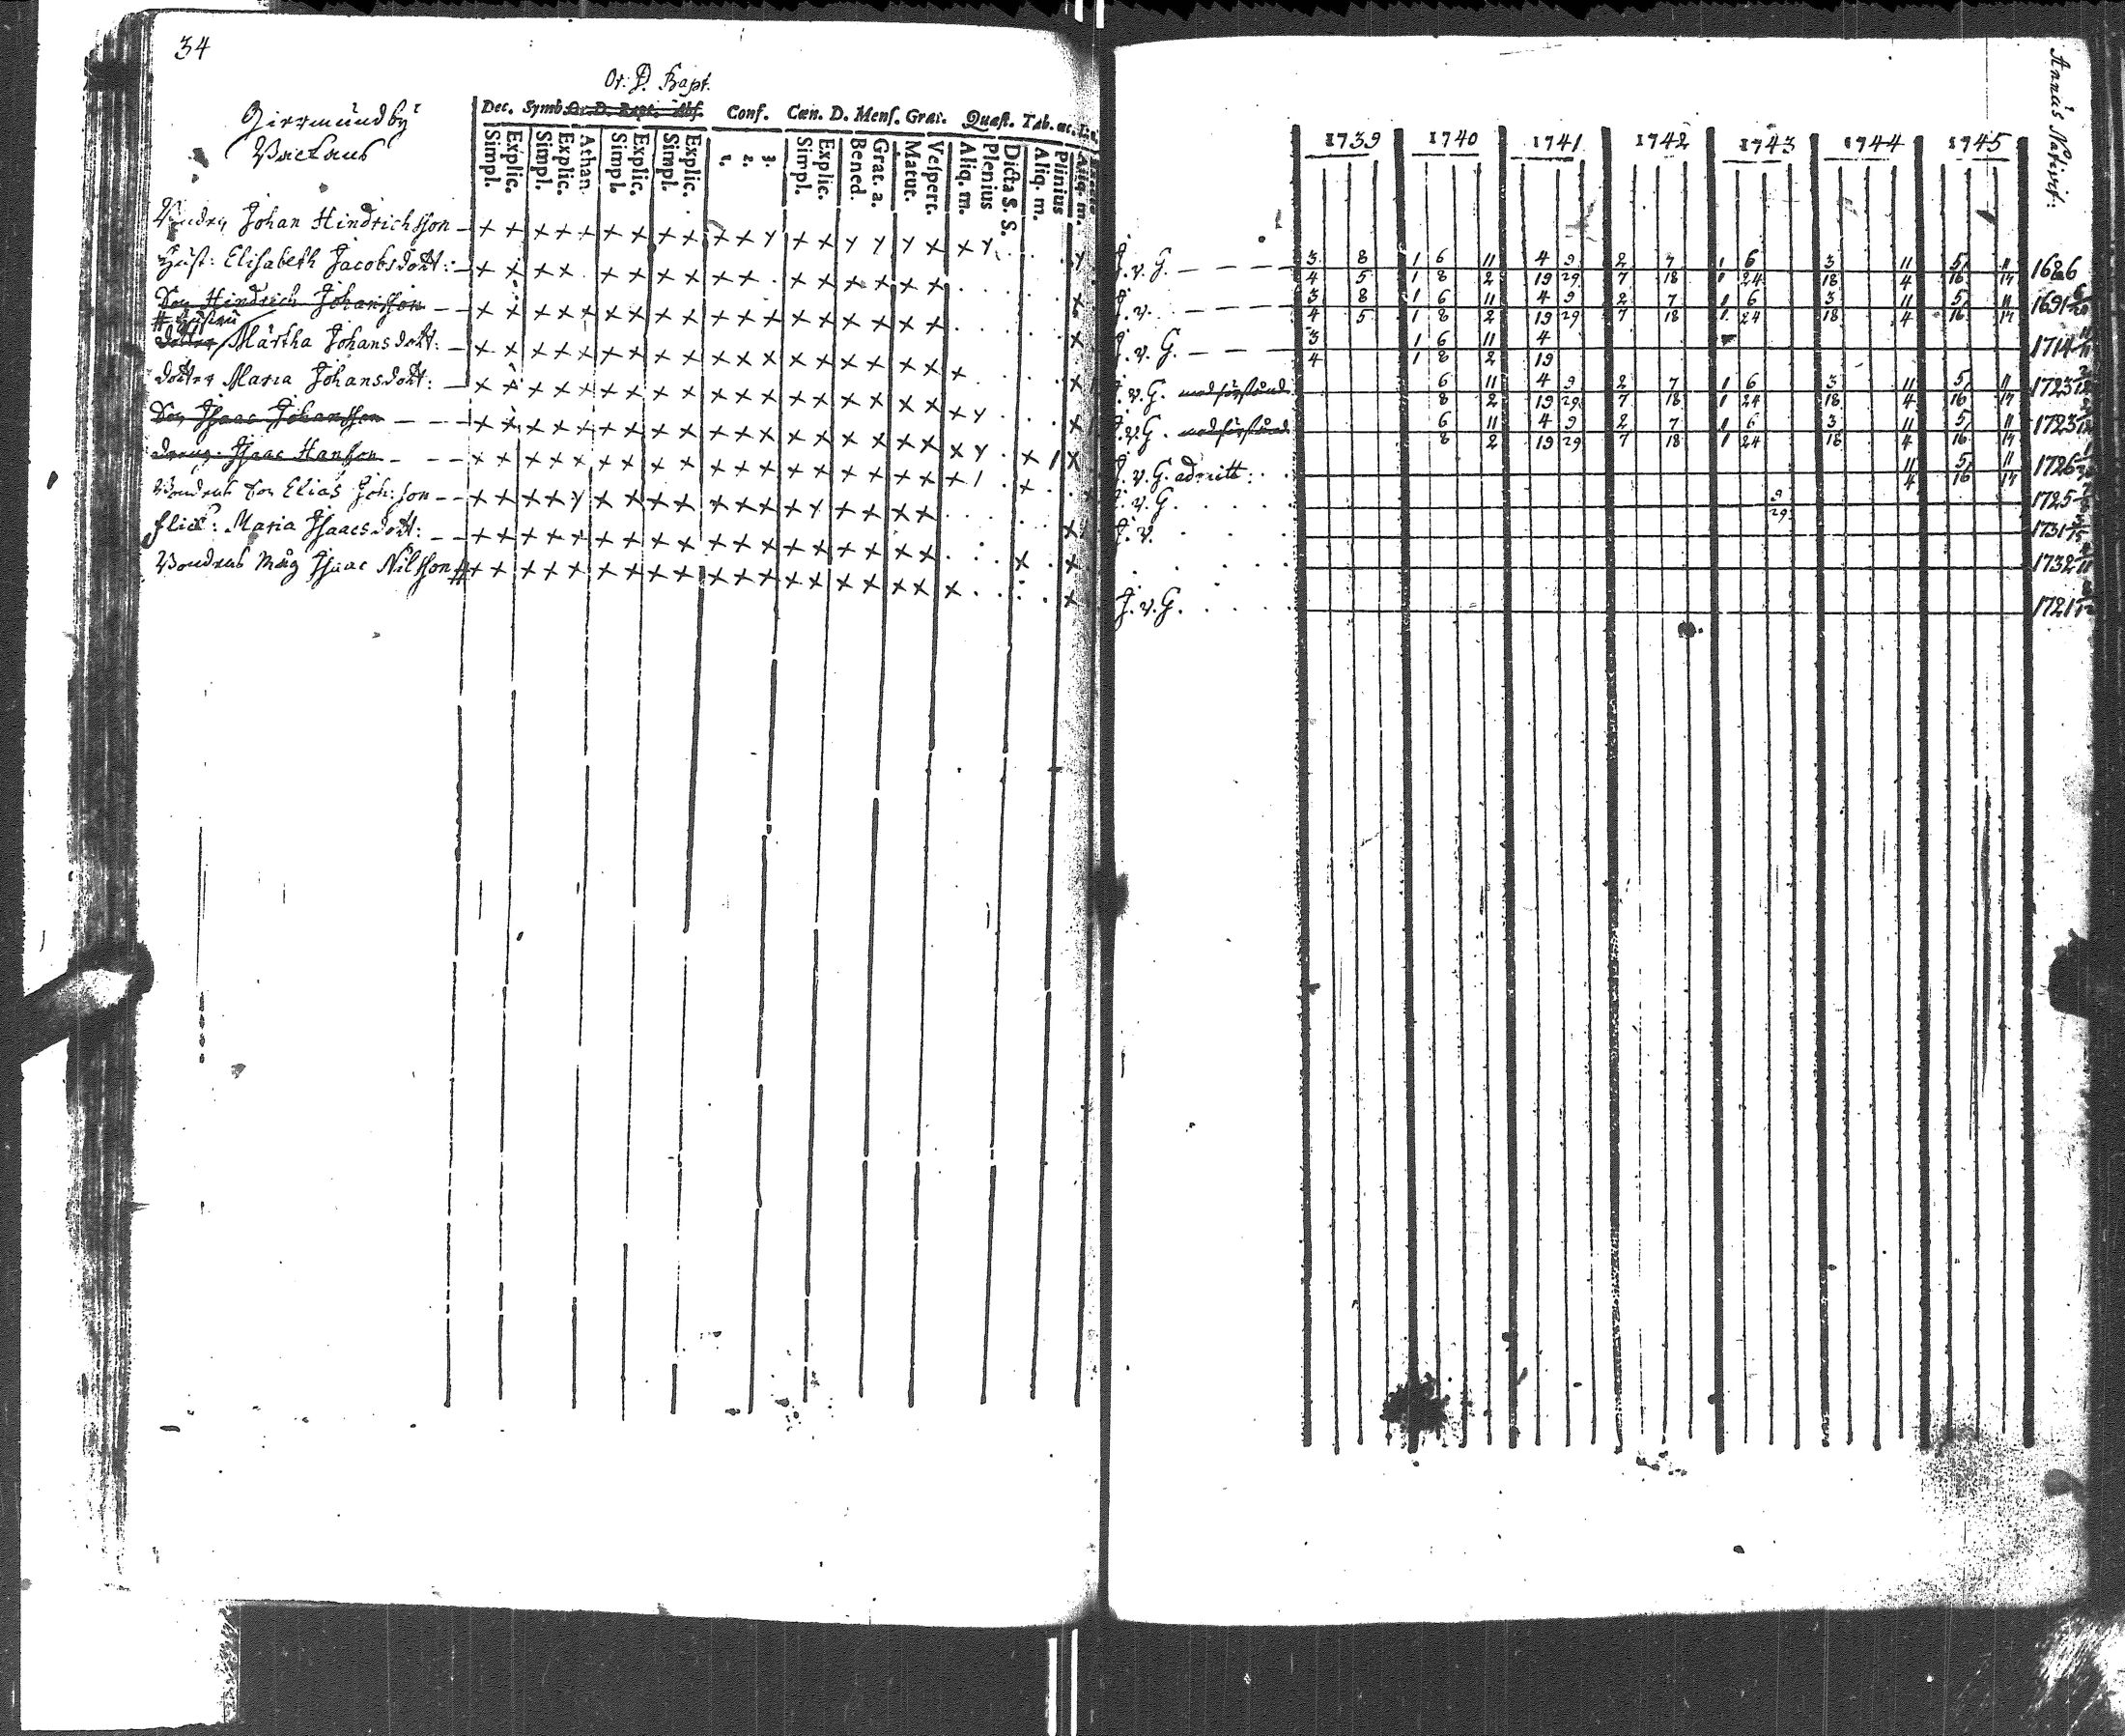 34
Or. D. Bapt.
Dec. Symb. Or. D. Bapt. Abs. Conf. Cœn. D. Mens. Grat. Quæst. Tab. œc.
Simpl. Explic. Simpl. Explic. Athan. Simpl. Explic. Simpl. Explic. 1. 2. 3. Simpl. Explic. Bened. Grat. a. Matut. Vespert. Aliq. m. Plenius Dicta S. S. Aliq. m. Plinius Aliq. m.
Johan Hindrichsson
Hust: Elisabeth Jacobsdott:
Son Hindrich Johansson
Hustru
Dotter Märtha Johansdott:
Dotter Maria Johansdott:
Son Isaac Johansson
Dreng. Isaac Hansson
Bondens Son Elias Joh:son
Flick: Maria Isaacsdott:
Bondens Måg Isaac Nilsson
Annus Nativit:
1739 1740 1741 1742 1743 1744 1745
J. v. G. 3 8 1 6 11 4 9 2 7 1 6 3 11 5 11 1686
4 5 1 8 2 19 29 7 18 1 24 18 4 16 17
J. v. 3 8 1 6 11 4 9 2 7 1 6 3 11 5 11 1691
4 5 1 8 2 19 29 7 18 1 24 18 4 16 17
J. v. G. 3 1 6 11 4 1714
4 1 8 2 19
J. v. G. 6 11 4 9 2 7 1 6 3 11 5 11 1723
8 2 19 29 7 18 1 24 18 4 16 17
J. v. G. 6 11 4 9 2 7 1 6 3 11 5 11 1723
8 2 19 29 7 18 1 24 18 4 16 17
J. v. G. admitt: 11 5 11 1726
4 16 17
J. v. G. 9 1725
29
J. v. 1731
1732
J. v. G. 1721